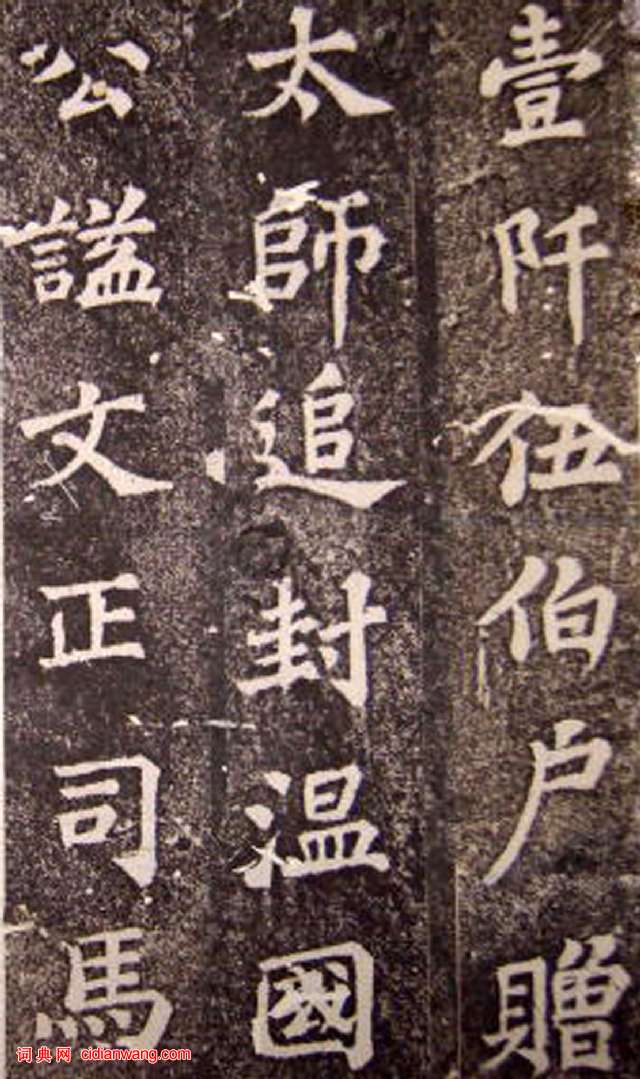 壹阡伍伯户贈
太師追封温國
公謚文正司馬
词典网 cidianwang.com